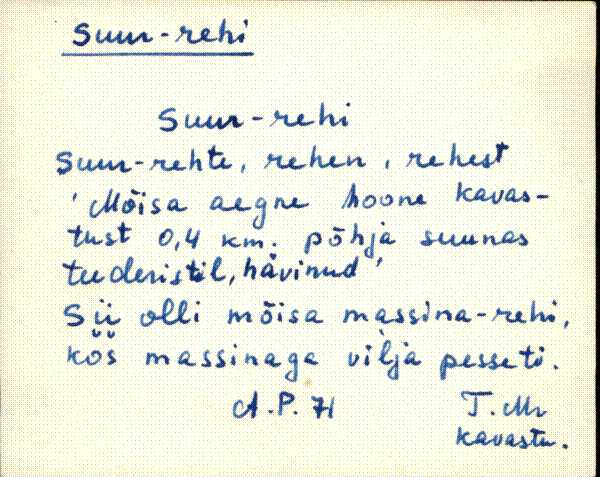 Suur-rehi
Suur-rehi
Suur-rehte, rehen, rehest
'Mõisa aegne hoone Kavas-
tust 0,4 km. põhja suunas
tuderistil, hävinud'
Sii olli mõisa massina-rehi,
kos massinaga vilja pesseti.
A.P. 71 T. Mr
Kavastu.